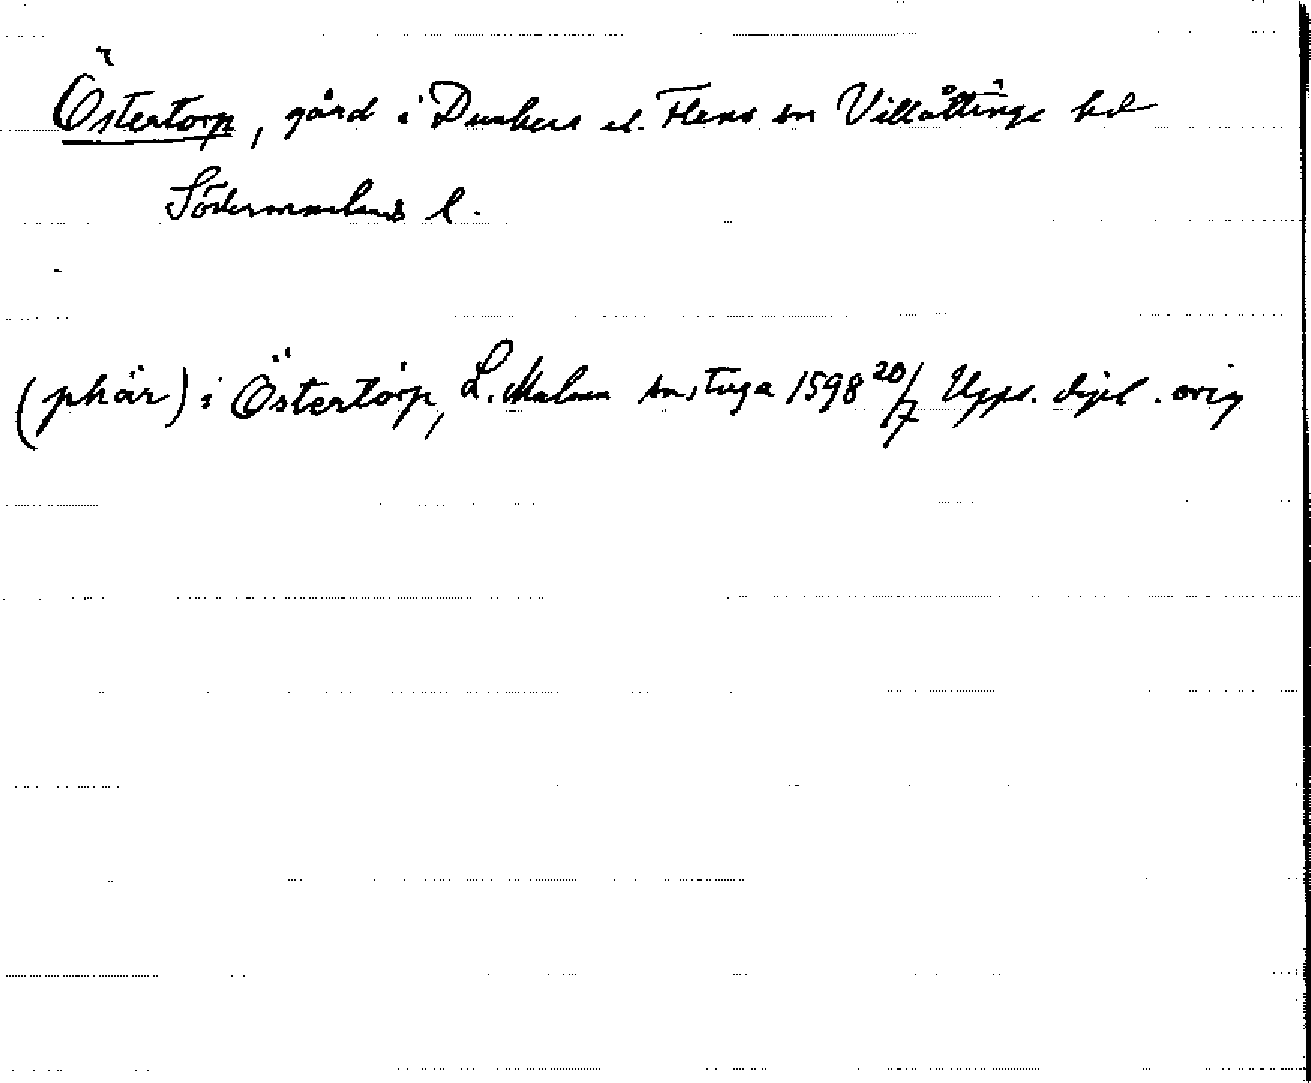 Östertorp, gård i Dunkers el. Flens sn Villåttinge hd
Södermanlands l.
(phär) i Östertörp, L. Malma snstuga 1598 20/7 Upps. dipl. orig